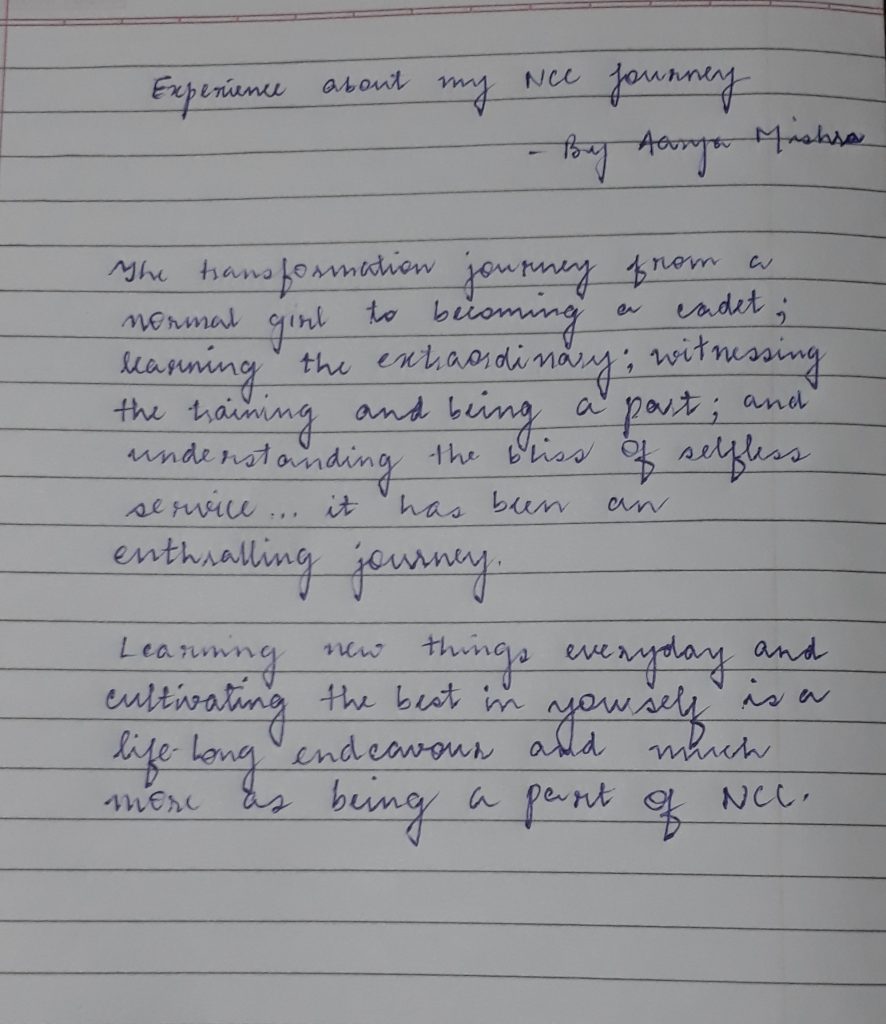 Experience about my NCC journey
- By Aarya Mishra
The transformation journey from a
normal girl to becoming a cadet;
learning the extraordinary; witnessing
the training and being a part; and
understanding the bliss of selfless
service... it has been an
enthralling journey.
Learning new things everyday and
cultivating the best in yourself is a
life-long endeavour and much
more as being a part of NCC.